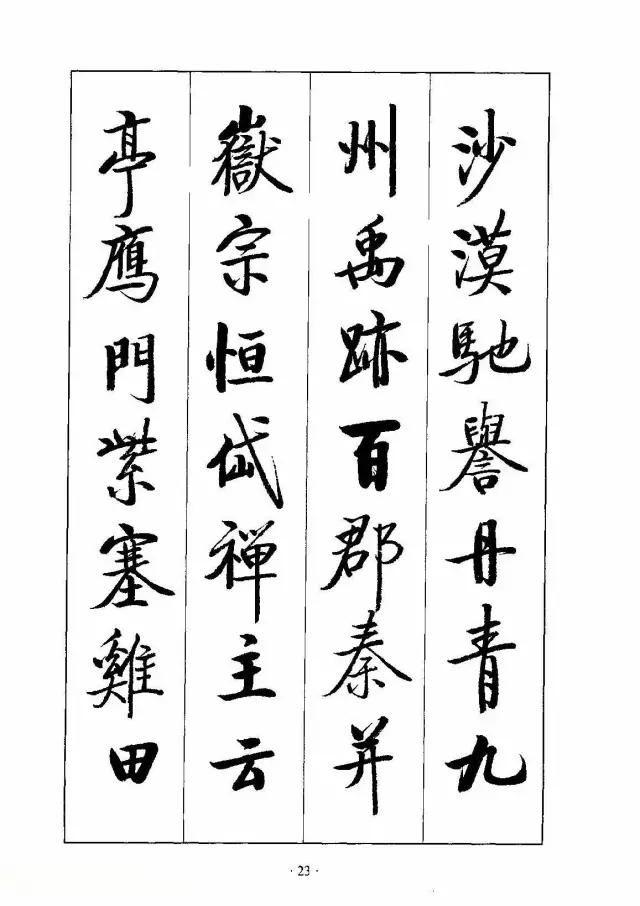 沙漠馳譽丹青九
州禹跡百郡秦并
嶽宗恒岱禪主云
亭鴈門紫塞雞田
· 23 ·